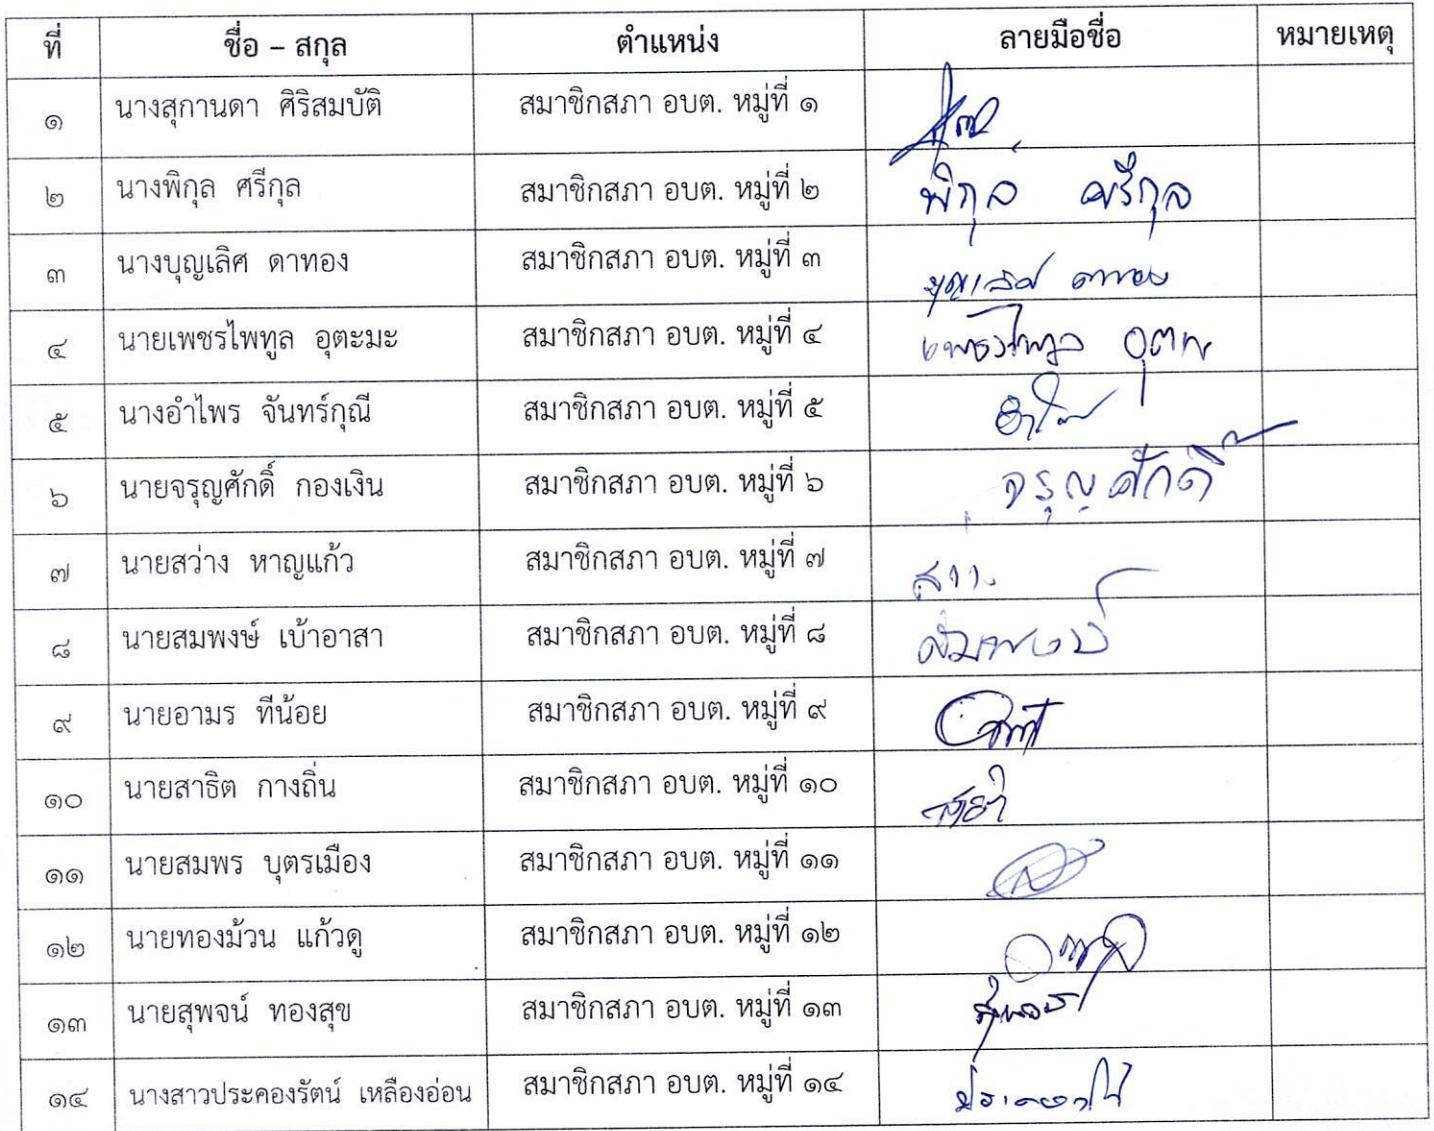 ที่ ชื่อ – สกุล ตำแหน่ง ลายมือชื่อ หมายเหตุ
๑ นางสุกานดา ศิริสมบัติ สมาชิกสภา อบต. หมู่ที่ ๑
๒ นางพิกุล ศรีกุล สมาชิกสภา อบต. หมู่ที่ ๒ พิกุล ศรีกุล
๓ นางบุญเลิศ ดาทอง สมาชิกสภา อบต. หมู่ที่ ๓ บุญเลิศ ดาทอง
๔ นายเพชรไพทูล อุตะมะ สมาชิกสภา อบต. หมู่ที่ ๔
๕ นางอำไพร จันทร์กุณี สมาชิกสภา อบต. หมู่ที่ ๕
๖ นายจรุญศักดิ์ กองเงิน สมาชิกสภา อบต. หมู่ที่ ๖ จรุญศักดิ์
๗ นายสว่าง หาญแก้ว สมาชิกสภา อบต. หมู่ที่ ๗
๘ นายสมพงษ์ เบ้าอาสา สมาชิกสภา อบต. หมู่ที่ ๘
๙ นายอามร ทีน้อย สมาชิกสภา อบต. หมู่ที่ ๙
๑๐ นายสาธิต กางถิ่น สมาชิกสภา อบต. หมู่ที่ ๑๐
๑๑ นายสมพร บุตรเมือง สมาชิกสภา อบต. หมู่ที่ ๑๑
๑๒ นายทองม้วน แก้วดู สมาชิกสภา อบต. หมู่ที่ ๑๒
๑๓ นายสุพจน์ ทองสุข สมาชิกสภา อบต. หมู่ที่ ๑๓
๑๔ นางสาวประคองรัตน์ เหลืองอ่อน สมาชิกสภา อบต. หมู่ที่ ๑๔